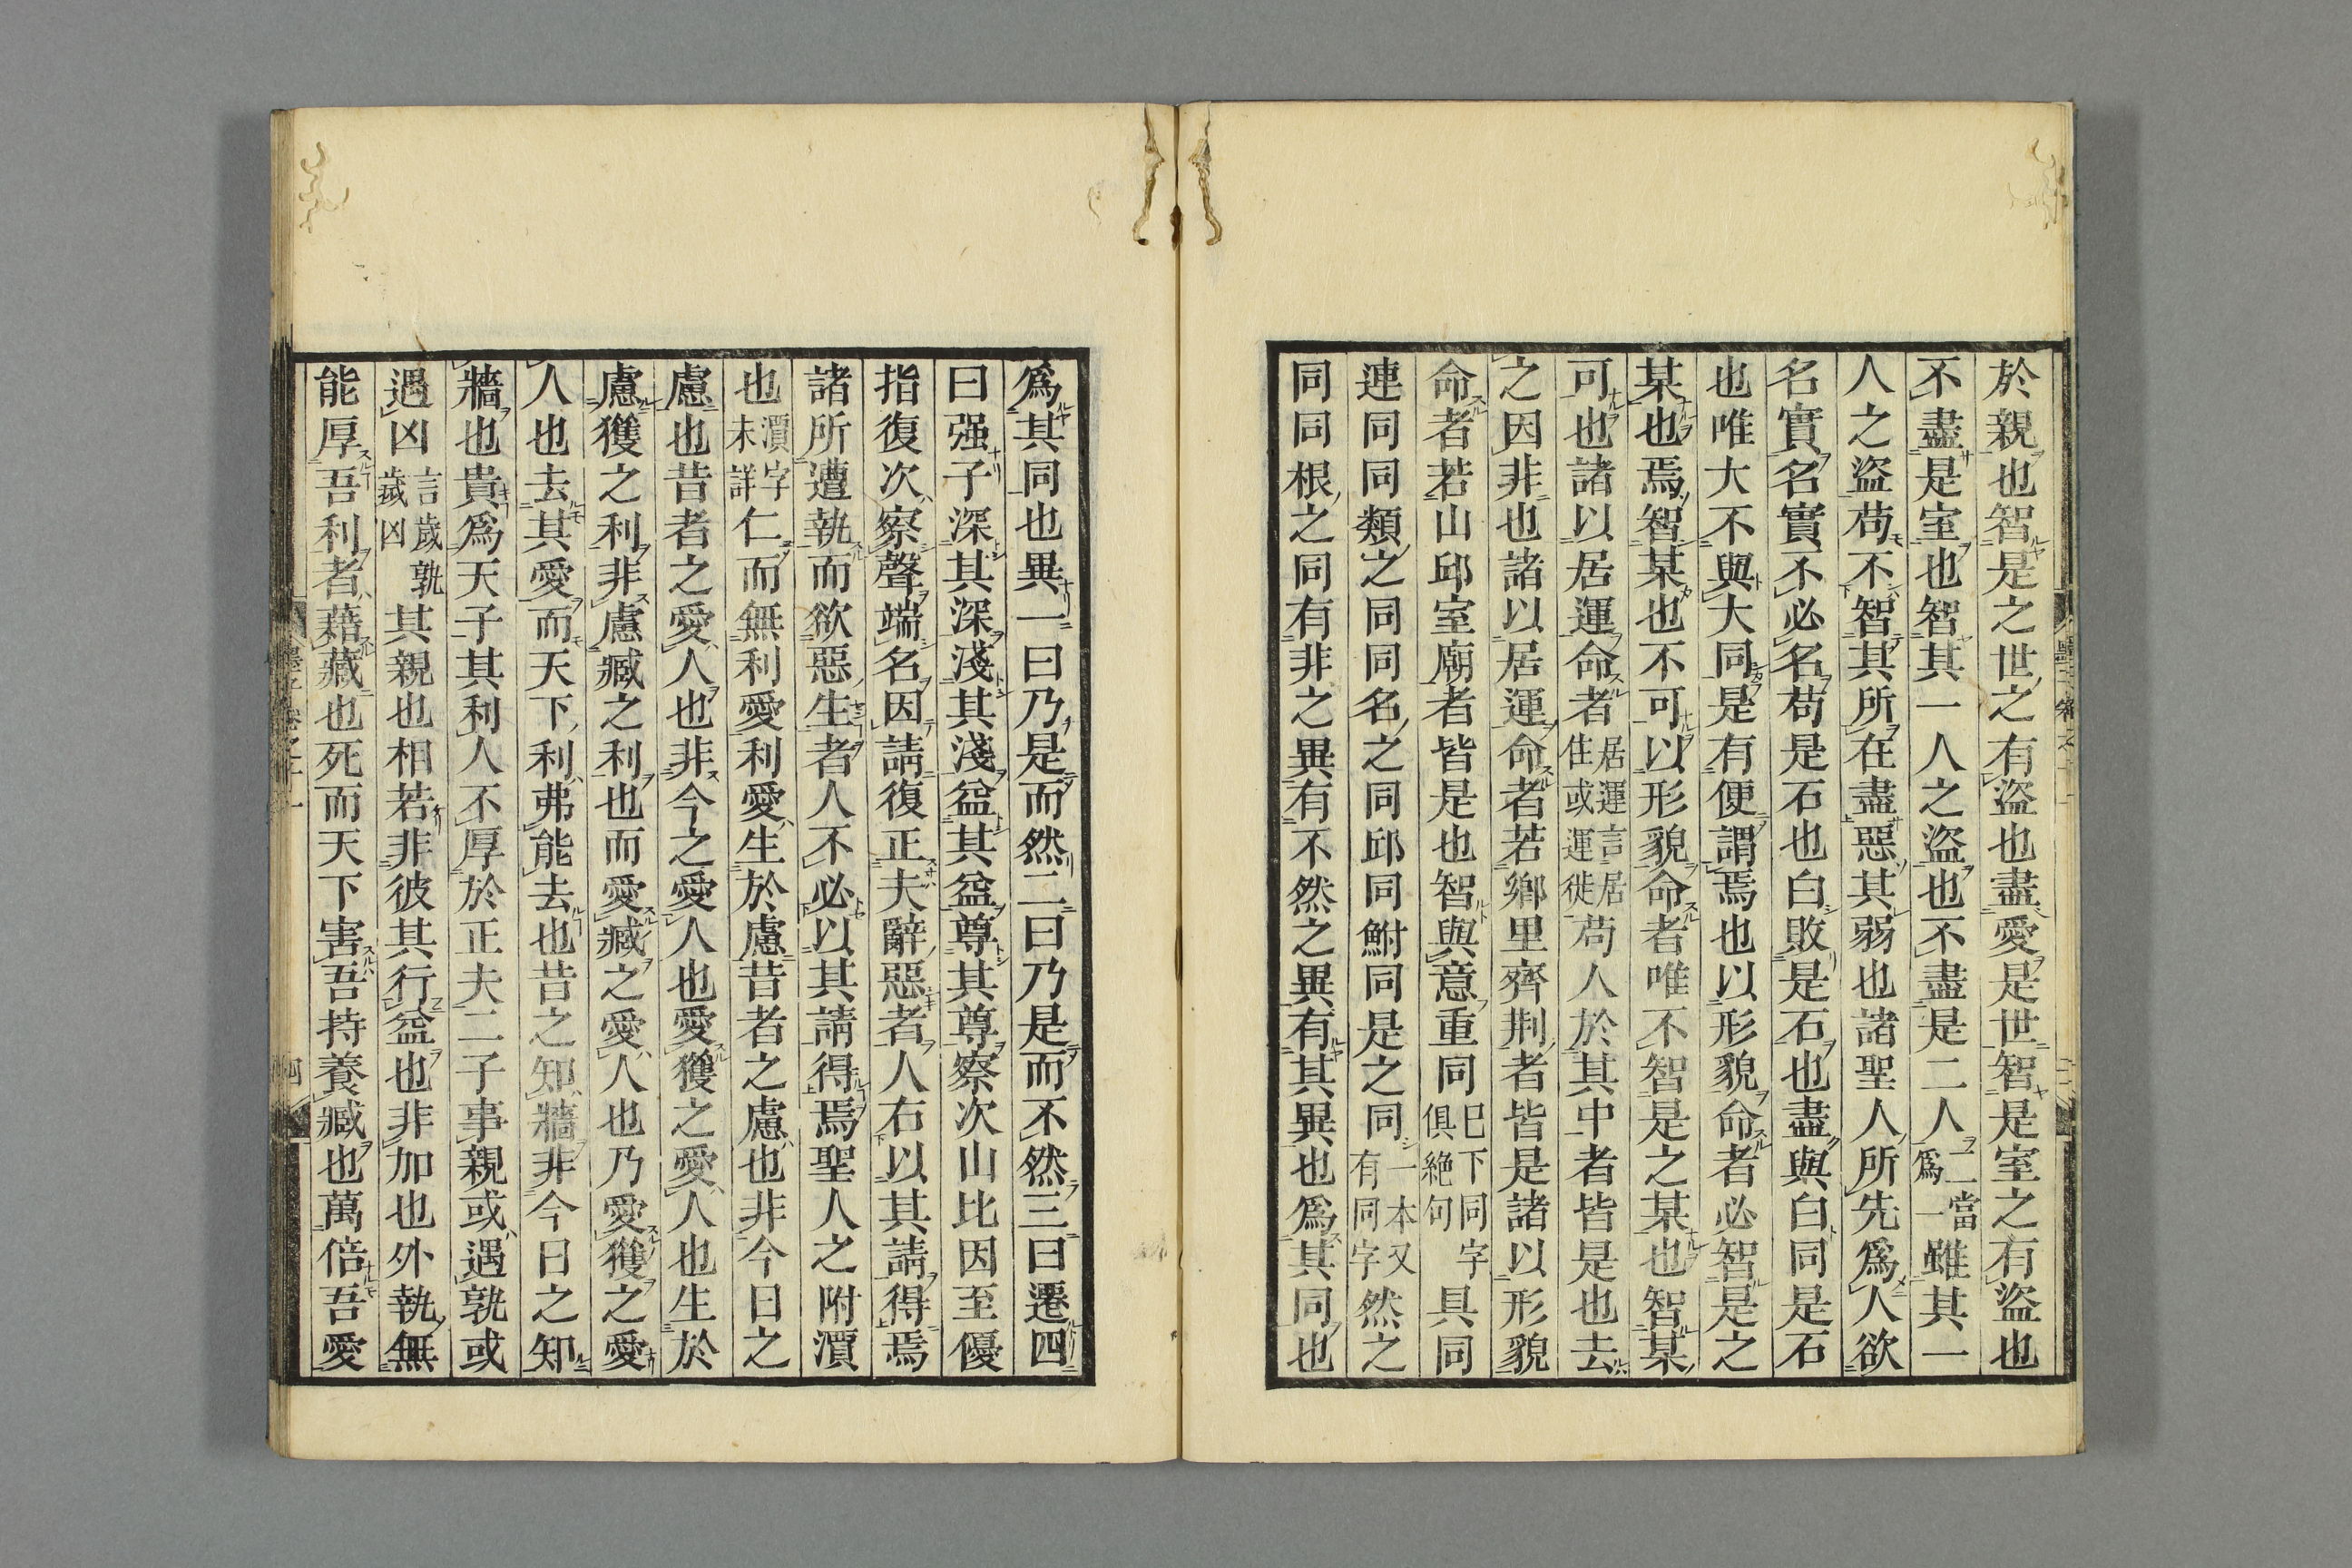 於親也智是之世之有盜也盡愛是世智是室之有盜也
不盡是室也智其一人之盜也不盡是二人二當爲一雖其一
人之盜苟不智其所在盡惡其弱也諸聖人所先爲人欲
名實名實不必名苟是石也白敗是石也盡與白同是石
也唯大不與大同是有便謂焉也以形貌命者必智是之
某也焉智某也不可以形貌命者唯不智是之某也智某
可也諸以居運命者居運言居住或運徙苟人於其中者皆是也去
之因非也諸以居運命者若鄉里齊荆者皆是諸以形貌
命者若山邱室廟者皆是也智與意重同巳下同字俱絶句具同
連同同類之同同名之同邱同鮒同是之同一本又有同字然之
同同根之同有非之異有不然之異有其異也爲其同也
爲其同也異一曰乃是而然二曰乃是而不然三曰遷四
曰强子深其深淺其淺益其益尊其尊察次山比因至優
指復次察聲端名因請復正夫辭惡者人右以其請得焉
諸所遭執而欲惡生者人不必以其請得焉聖人之附瀆
也瀆字未詳仁而無利愛利愛生於慮昔者之慮也非今日之
慮也昔者之愛人也非今之愛人也愛獲之愛人也生於
慮獲之利非慮臧之利也而愛臧之愛人也乃愛獲之愛
人也去其愛而天下利弗能去也昔之知牆非今日之知
牆也貴爲天子其利人不厚於正夫二子事親或遇孰或
遇凶言歲孰歲凶其親也相若非彼其行益也非加也外執無
能厚吾利者藉臧也死而天下害吾持養臧也萬倍吾愛